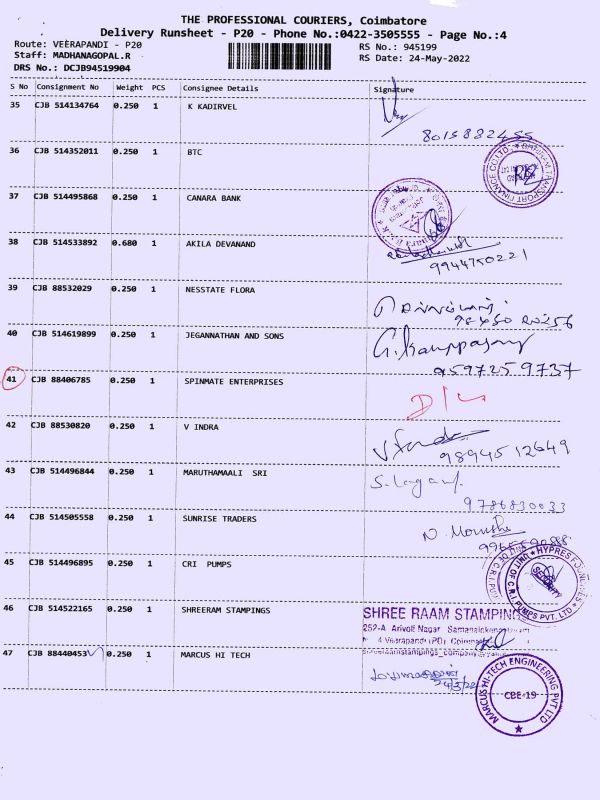 THE PROFESSIONAL COURIERS, Coimbatore
Delivery Runsheet - P20 - Phone No.:0422-3505555 - Page No.:4
Route: VEERAPANDI - P20
RS No.: 945199
Staff: MADHANAGOPAL.R
RS Date: 24-May-2022
DRS No.: DCJB94519904
S No Consignment No Weight PCS Consignee Details Signature
35 CJB 514134764 0.250 1 K KADIRVEL
8015882455
36 CJB 514352011 0.250 1 BTC
37 CJB 514495868 0.250 1 CANARA BANK
38 CJB 514533892 0.680 1 AKILA DEVANAND
9944750221
39 CJB 88532029 0.250 1 NESSTATE FLORA
40 CJB 514619899 0.250 1 JEGANNATHAN AND SONS
9597259737
41 CJB 88406785 0.250 1 SPINMATE ENTERPRISES
42 CJB 88530820 0.250 1 V INDRA
9894512649
43 CJB 514496844 0.250 1 MARUTHAMAALI SRI
9786830033
44 CJB 514505558 0.250 1 SUNRISE TRADERS
45 CJB 514496895 0.250 1 CRI PUMPS
SECURITY
46 CJB 514522165 0.250 1 SHREERAM STAMPINGS
SHREE RAAM STAMPING
252-A Arivoli Nagar
47 CJB 88440453 0.250 1 MARCUS HI TECH
MARCUS HI-TECH ENGINEERING PVT LTD
CBE-19